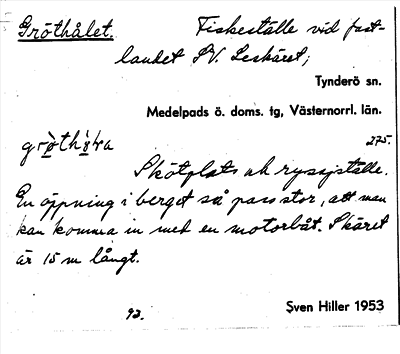 Gröthålet. Fiskeställe vid fast-
landet SV. Leskäret;
Tynderö sn.
Medelpads ö. doms. tg, Västernorrl. län.
275.
Skötplats och ryssjställe.
En öppning i berget så pass stor, att man
kan komma in med en motorbåt. Skäret
är 15 m långt.
92. Sven Hiller 1953